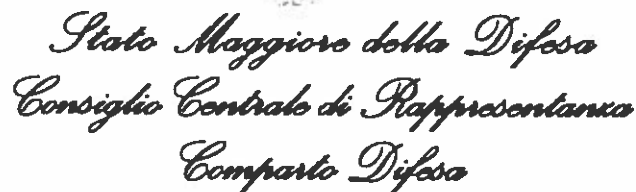 Stato Maggiore della Difesa
Consiglio Centrale di Rappresentanza
Comparto Difesa